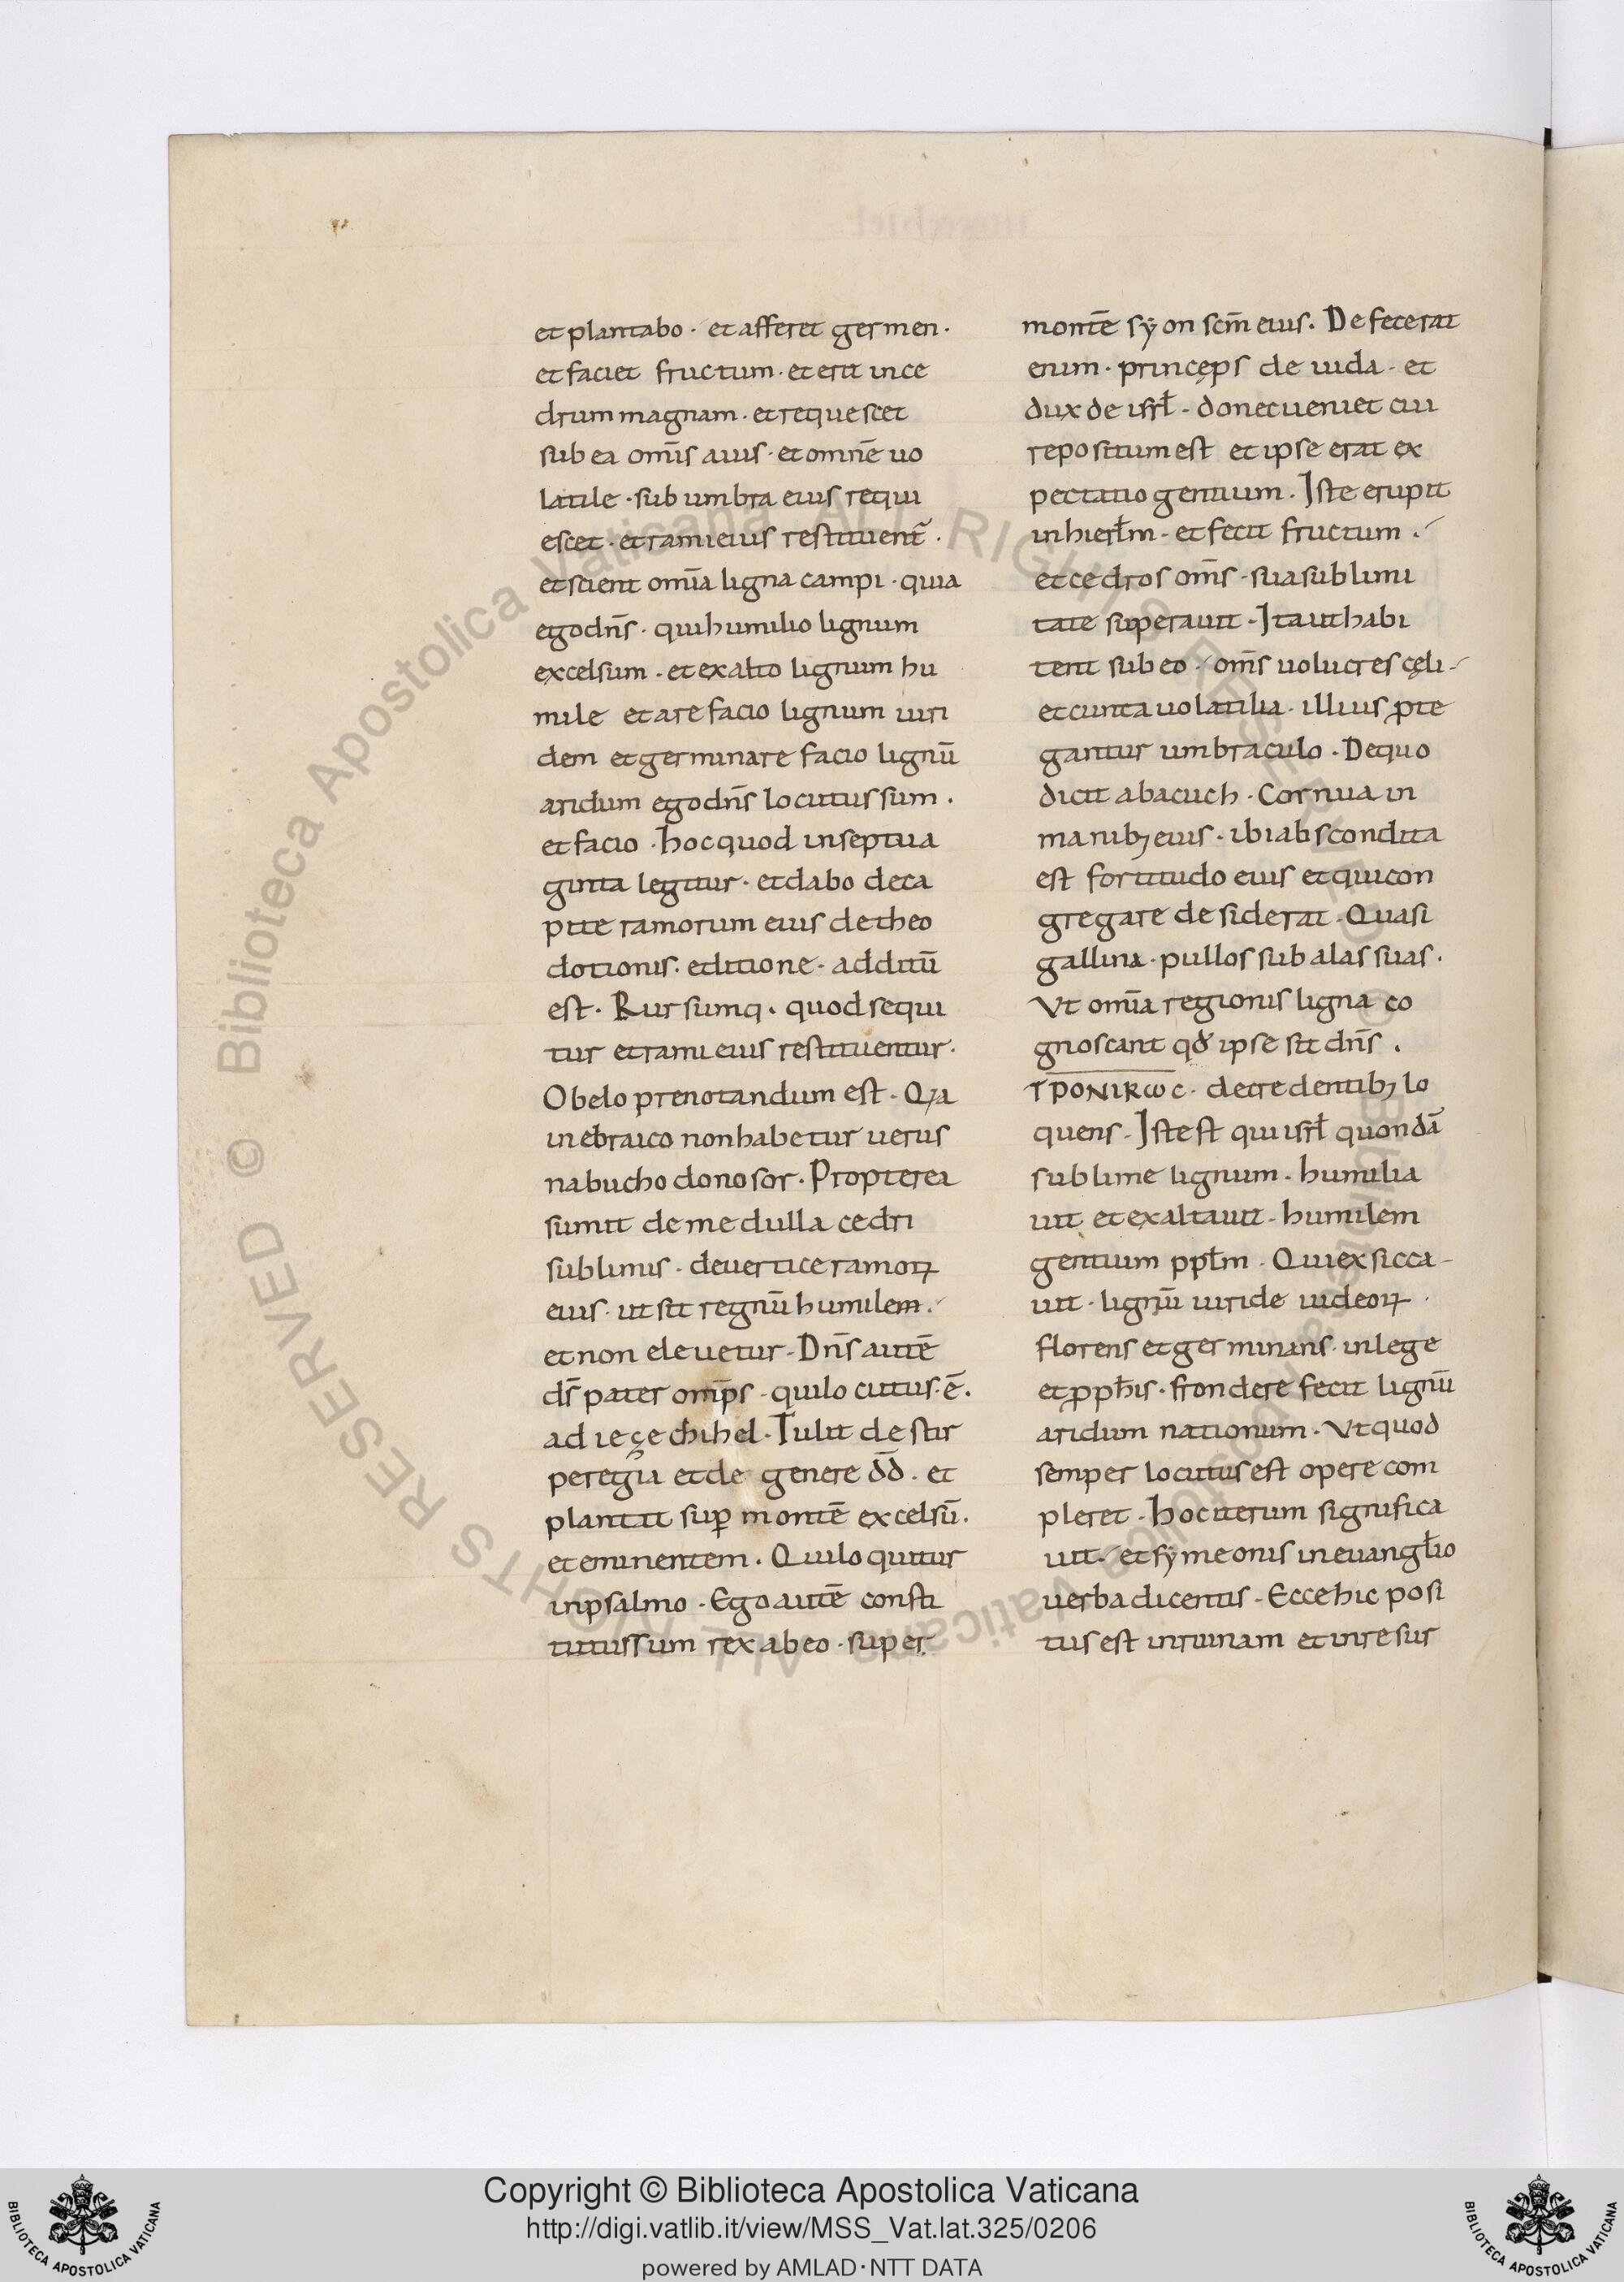 et plantabo · et afferet germen ·
et faciet fructum · et erit in ce
drum magnam · et requescet
sub ea om̄is auis · et omnē uo
latile · sub umbra eius requi
escet · et rami eius restituent̄ ·
et scient om̄ia ligna campi · quia
ego dn̄s · qui humilio lignum
excelsum · et exalto lignum hu
mile et are facio lignum uiri
dem et germinare facio lignū
aridum ego dn̄s locutus sum ·
et facio · hoc quod in septua
ginta legitur · et dabo de ca
pite ramorum eius de theo
dotionis · editione · additū
est · Rursumq · quod sequi
tur et rami eius restituentur ·
Obelo prenotandum est · Qꝫa
in ebraico non habetur uerus
nabuchodonosor · Propterea
sumit de medulla cedri
sublimis · de uertice ramoꝝ
eius · ut sit regnū humilem ·
et non eleuetur · Dn̄s autē
ds̄ pater om̄ps · qui locutus · ē ·
ad ieçechihel · Tulit de stir
pe regia et de genere dd̄ · et
plantit suꝑ montē excelsū ·
et eminentem · Qui loquitur
in psalmo · Ego autē consti
tutus sum rex ab eo · super
montē sÿon scm̄ eius · Defecerat
enim · princęps de iuda · et
dux de isrł · donec ueniet cui
repositum est et ipse erat ex
pectatio gentium · Iste erupit
in hierłm · et fecit fructum ·
et cedros om̄s · sua sublimi
tate superauit · Ita ut habi
tent sub eo · om̄s uolucres cęli ·
et cunta uolatilia · illius ꝓte
gantur umbraculo · De quo
dicit abacuch · Cornua in
manibꝫ eius · ibi abscondita
est fortitudo eius et qui con
gregare desiderat · Quasi
gallina · pullos sub alas suas ·
Vt om̄ia regionis ligna co
gnoscant qđ ipse sit dn̄s ·
TPONIKωC · de credentibꝫ lo
quens · Iste st qui isrł quondā
sublime lignum · humilia
uit et exaltauit · humilem
gentium ppłm · Qui exsicca-
uit · lignū uiride iudeoꝝ ·
florens et germinans · in lege
et ꝓph̄is · frondere fecit lignū
aridum nationum · Vt quod
semper locutus est opere com
pleret · hoc iterum significa
uit · et sÿmeonis in euangłio
uerba dicentis · Ecce hic posi
tus est in ruinam et in resur
Copyright © Biblioteca Apostolica Vaticana
http://digi.vatlib.it/view/MSS_Vat.lat.325/0206
powered by AMLAD·NTT DATA
© Biblioteca Apostolica Vaticana ALL RIGHTS RESERVED
BIBLIOTECA APOSTOLICA VATICANA
BIBLIOTECA APOSTOLICA VATICANA